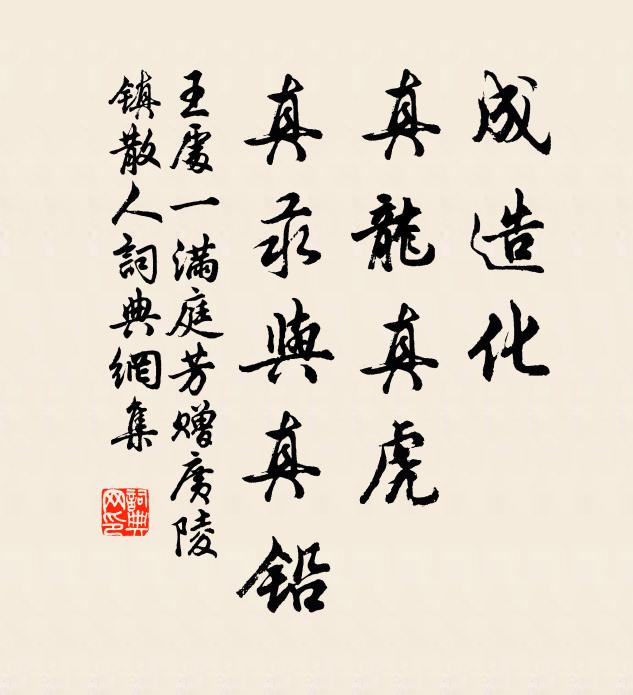 成造化
真龍真虎
真汞與真鉛
王處一滿庭芳贈廣陵
鎮散人詞典網集
詞典网印